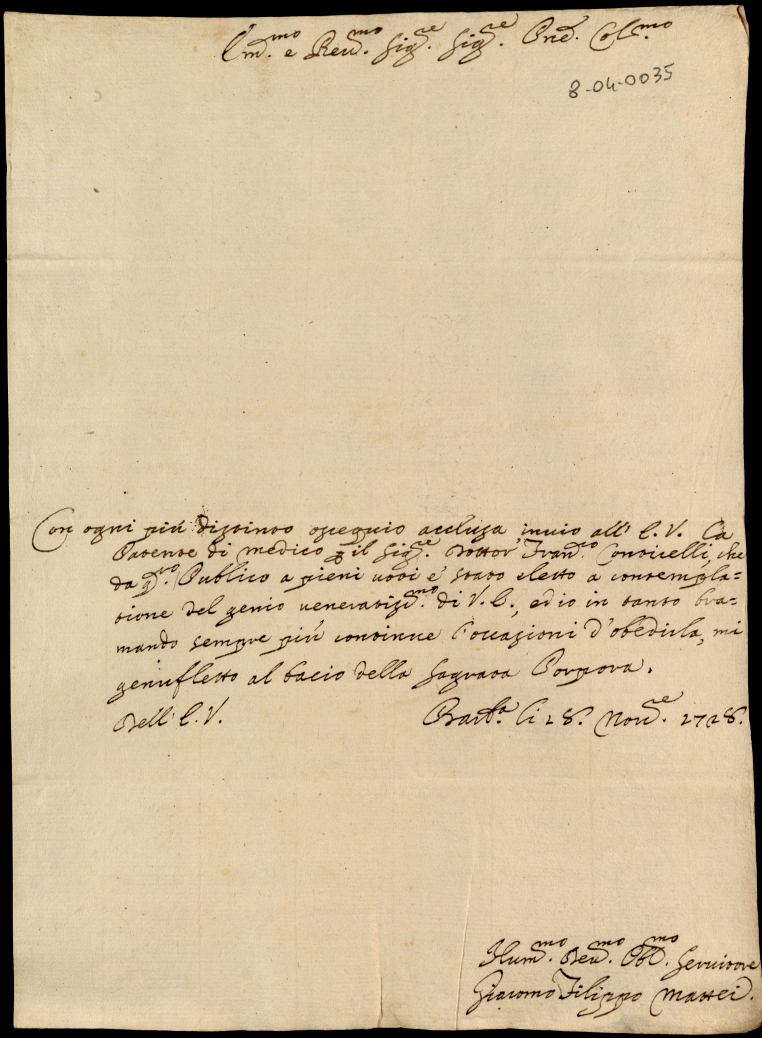 Em.mo e Reu.mo Sig.re Sig.re Pne. Col.mo
8-04-0035
Con ogni più distinto ossequio acclusa inuio all' E. V. La
Patente di medico p il Sig.re Dottor Fran.co Conticelli, che
da q.sto Publico a pieni uoti e' stato eletto a contempla=
tione del genio ueneratiss.mo di V. E., ed io in tanto bra=
mando sempre più continue l'occasioni d'obedirla, mi
genufletto al bacio della Sagrata Porpora.
Dell' E. V. li 18. Nou.re 1728.
Hum.mo Deu.mo Obl.mo Seruitore
Giacomo Filippo Mattei.